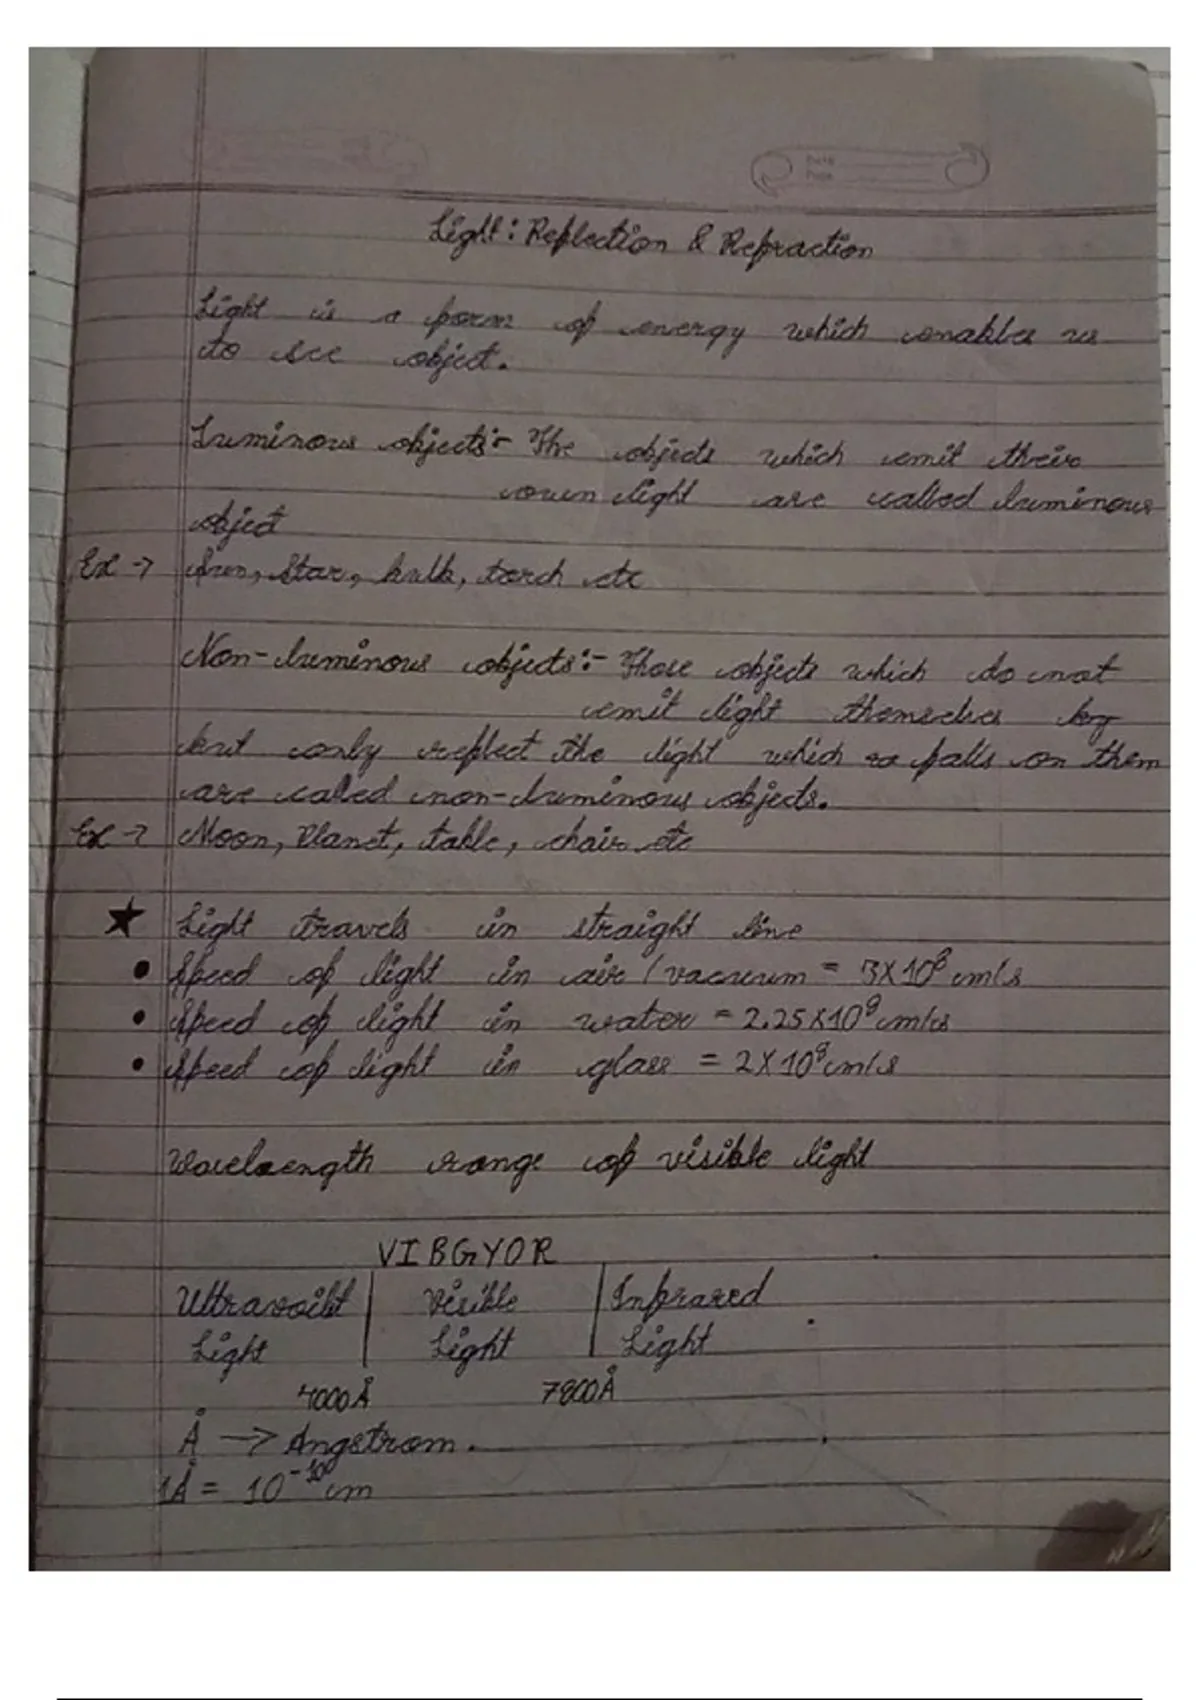 Date
Page
Light: Reflection & Refraction
Light is a form of energy which enables us
to see object.
Luminous objects:- The objects which emit their
own light are called luminous
object
Ex → Sun, Star, bulb, torch etc
Non-luminous objects:- Those objects which do not
emit light themselves
but only reflect the light which falls on them
are called non-luminous objects.
Ex → Moon, Planet, table, chair etc
★ Light travels in straight line
• Speed of light in air / vacuum = 3X10⁸ m/s
• Speed of light in water = 2.25X10⁸ m/s
• Speed of light in glass = 2X10⁸ m/s
Wavelength range of visible light
VIBGYOR
Ultravoilet | Visible | Infrared
Light | Light | Light
4000Å 7800Å
Å → Angstrom.
1Å = 10⁻¹⁰ m